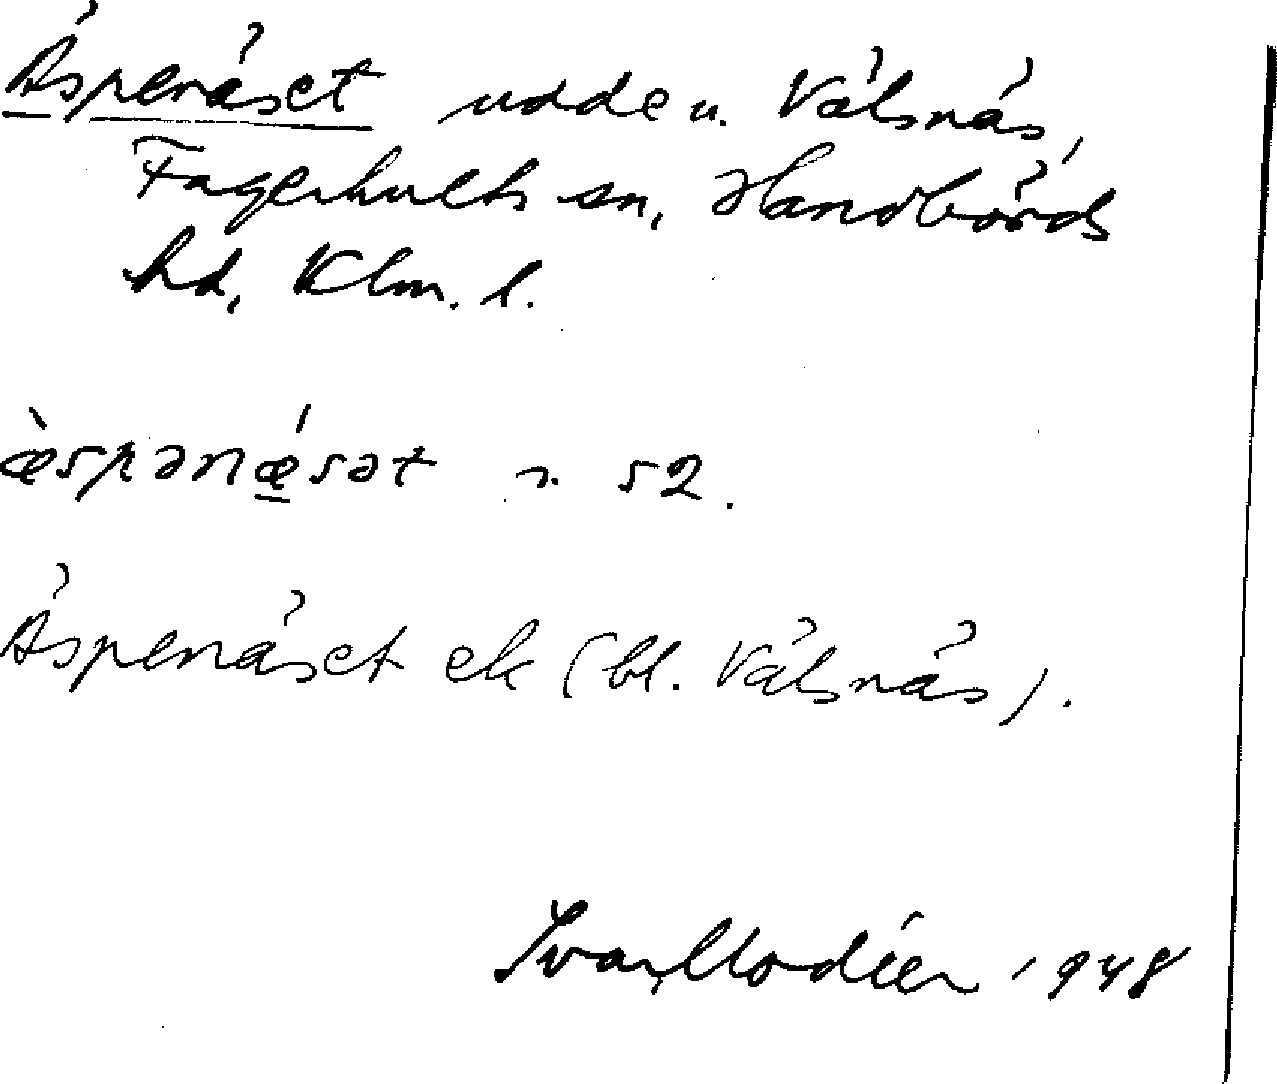 Äspenäset udde u. Välsnäs,
Fagerhults sn, Handbörds
hd, Klm. l.
æ̀spənǽ̲sət n. s2.
Äspenäset ek (bl. Välsnäs).
Ivar Modéer 1948